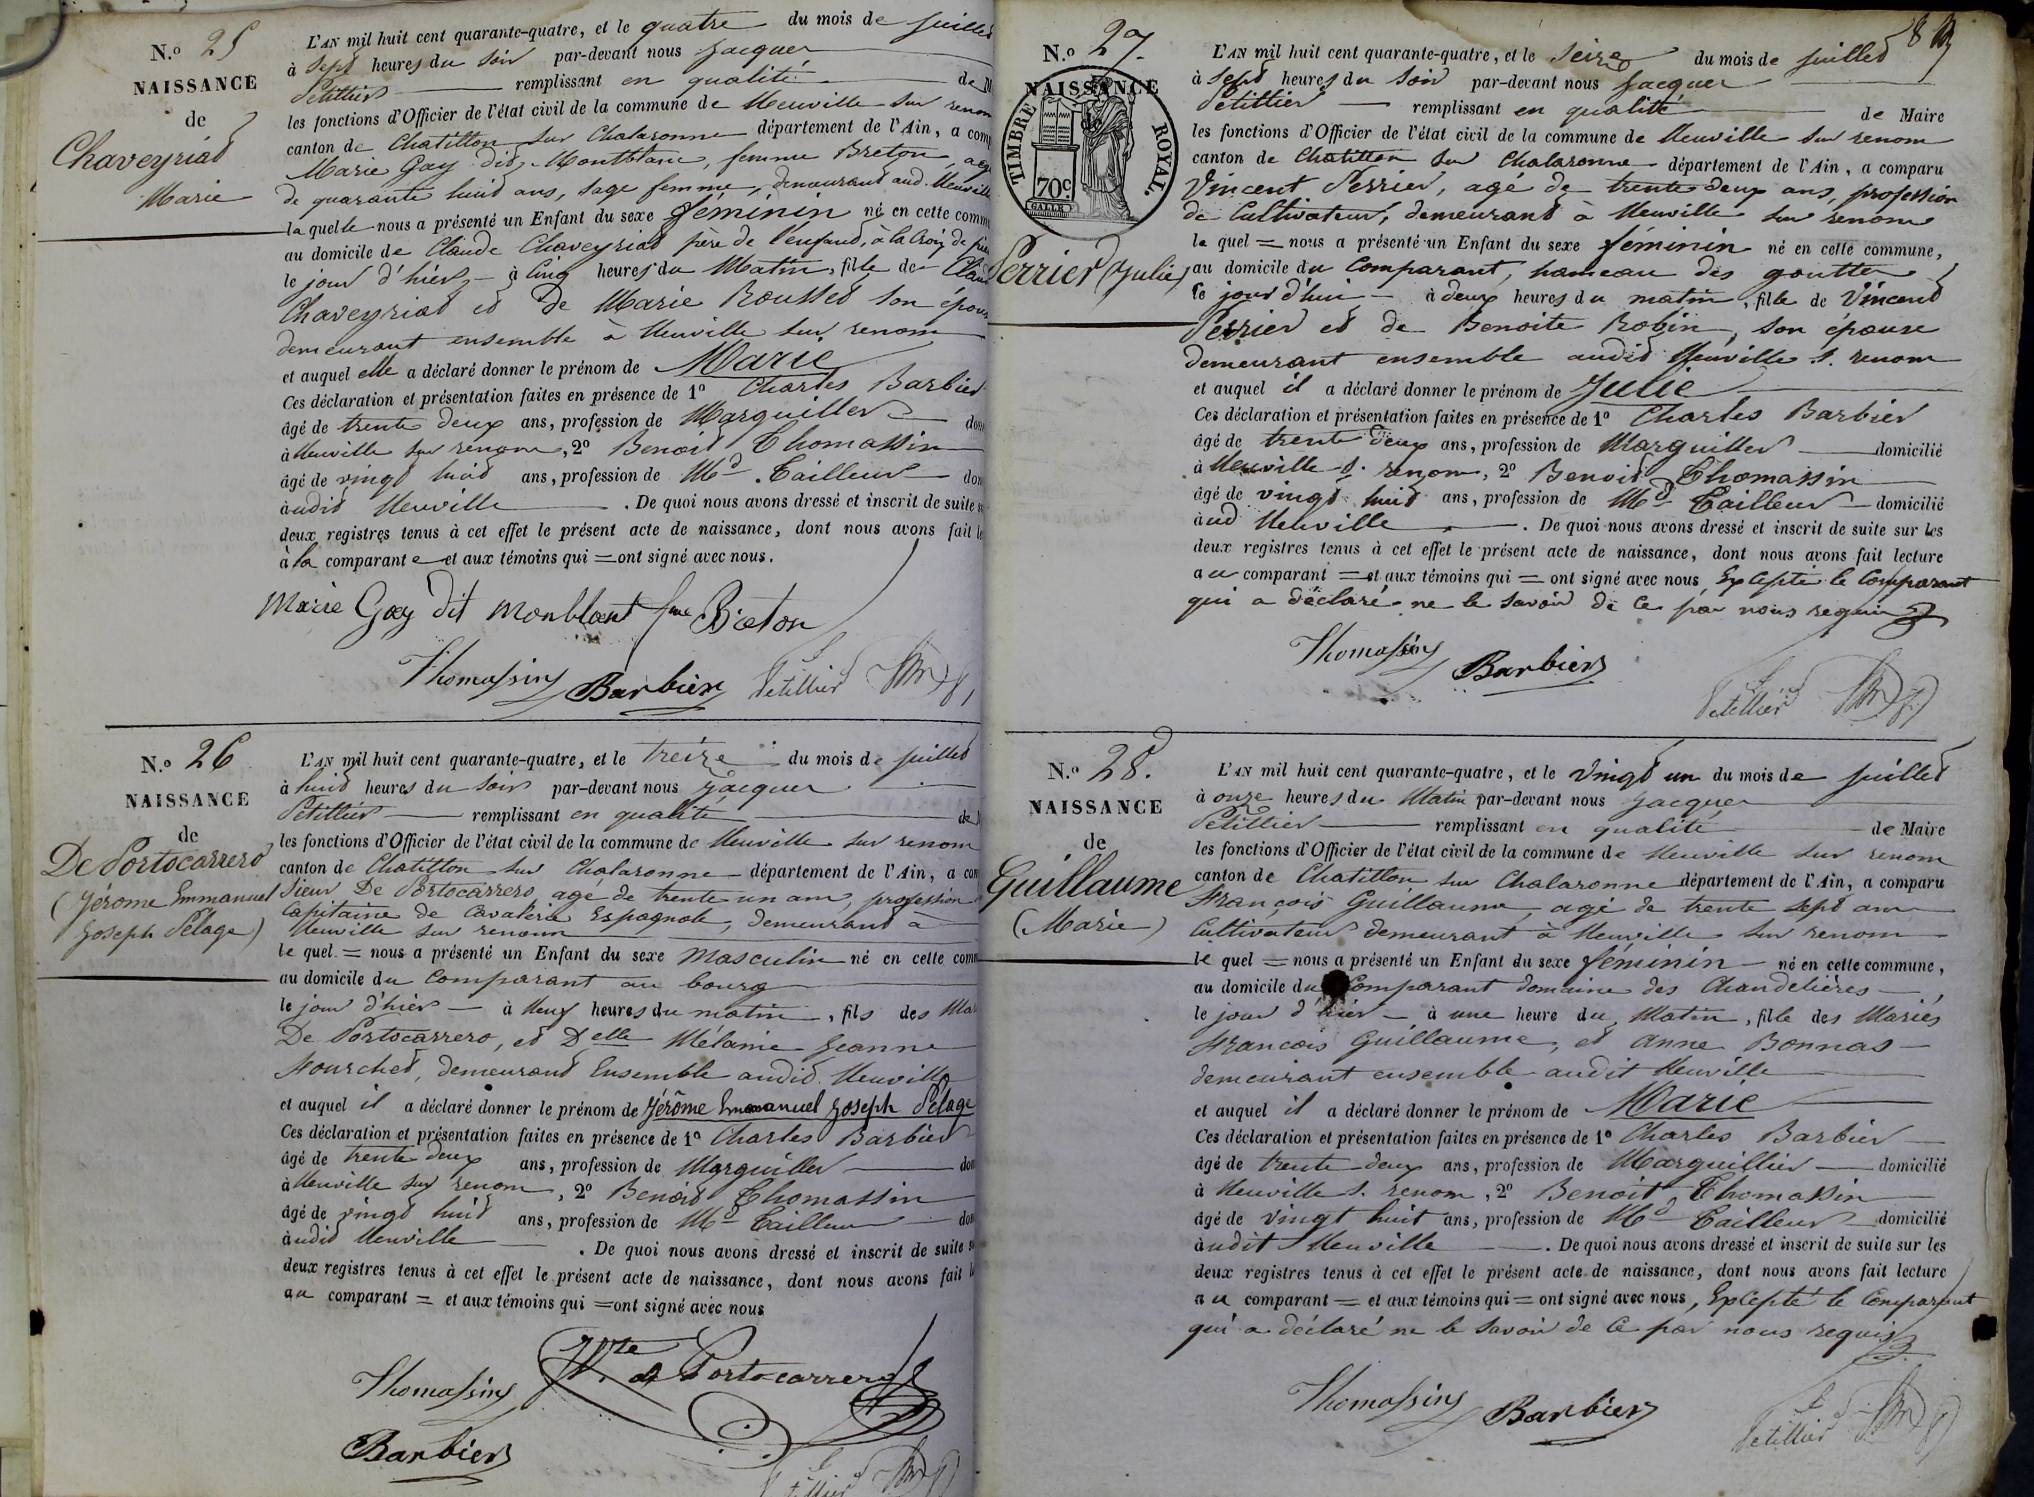 N.º 25
NAISSANCE
de
Chaveyriat
Marie
L'AN mil huit cent quarante-quatre, et le quatre du mois de juillet
à sept heures du soir par-devant nous Jacques
Petillier remplissant en qualité de M
les fonctions d'Officier de l'état civil de la commune de Neuville sur renom
canton de Chatillon sur Chalaronne département de l'Ain, a comp
Marie Gay dit Montblanc, femme Breton, agée
de quarante huit ans, sage femme, demeurant aud. Neuville
la quelle nous a présenté un Enfant du sexe féminin né en cette comm
au domicile de Claude Chaveyriat père de l'enfant, à la Croix de
le jour d'hier à cinq heures du Matin, fille de Claude
Chaveyriat et de Marie Rousset son épouse
demeurant ensemble à Neuville sur renom
et auquel elle a déclaré donner le prénom de Marie
Ces déclaration et présentation faites en présence de 1º Charles Barbier
âgé de trente deux ans, profession de Marguiller dom
à Neuville sur renom, 2º Benoit Thomassin
âgé de vingt huit ans, profession de Md Tailleur dom
audit Neuville . De quoi nous avons dressé et inscrit de suite s
deux registres tenus à cet effet le présent acte de naissance, dont nous avons fait le
à la comparante et aux témoins qui = ont signé avec nous.
Marie Gay dit Monblant fme Breton
Thomassin Barbier Petillier
N.º 26
NAISSANCE
de
De Portocarrero
(Jérome Emmanuel
Joseph Pélage)
L'AN mil huit cent quarante-quatre, et le treize du mois de juillet
à huit heures du soir par-devant nous Jacques
Petillier remplissant en qualité de
les fonctions d'Officier de l'état civil de la commune de Neuville sur renom
canton de Chatillon sur Chalaronne département de l'Ain, a com
Sieur De Portocarrero, agé de trente un ans, profession
Capitaine de Cavalerie Espagnole, demeurant à
Neuville sur renom
le quel = nous a présenté un Enfant du sexe Masculin né en cette comm
au domicile du Comparant au bourg
le jour d'hier à neuf heures du matin, fils des Mar
De Portocarrero, et Delle Mélanie Jeanne
Fourchet, demeurant Ensemble audit Neuville
et auquel il a déclaré donner le prénom de Jérôme Emmanuel Joseph Pélage
Ces déclaration et présentation faites en présence de 1º Charles Barbier
âgé de trente deux ans, profession de Marguiller dom
à Neuville sur renom, 2º Benoit Thomassin
âgé de vingt huit ans, profession de Md Tailleur dom
audit Neuville . De quoi nous avons dressé et inscrit de suite s
deux registres tenus à cet effet le présent acte de naissance, dont nous avons fait l
au comparant = et aux témoins qui = ont signé avec nous
Thomassin Vte de Portocarrero
Barbier
Petillier
8
N.º 27.
NAISSANCE
TIMBRE ROYAL.
70c.
GALLE
Perrier (Julie)
L'AN mil huit cent quarante-quatre, et le seize du mois de juillet
à sept heures du soir par-devant nous Jacques
Petillier remplissant en qualité de Maire
les fonctions d'Officier de l'état civil de la commune de Neuville sur renom
canton de Chatillon sur Chalaronne département de l'Ain, a comparu
Vincent Perrier, agé de trente deux ans, profession
de Cultivateur, demeurant à Neuville sur renom
le quel = nous a présenté un Enfant du sexe féminin né en cette commune,
au domicile du Comparant, hameau des gouttes
le jour d'hui à deux heures du matin, fille de Vincent
Perrier et de Benoite Robin, son épouse
demeurant ensemble audit Neuville s. renom
et auquel il a déclaré donner le prénom de Julie
Ces déclaration et présentation faites en présence de 1º Charles Barbier
âgé de trente deux ans, profession de Marguiller domicilié
à Neuville s. renom, 2º Benoit Thomassin
âgé de vingt huit ans, profession de Md Tailleur domicilié
aud Neuville . De quoi nous avons dressé et inscrit de suite sur les
deux registres tenus à cet effet le présent acte de naissance, dont nous avons fait lecture
au comparant = et aux témoins qui = ont signé avec nous Excepté le Comparant
qui a déclaré ne le savoir de ce par nous requis
Thomassin Barbier
Petillier
N.º 28.
NAISSANCE
de
Guillaume
(Marie)
L'AN mil huit cent quarante-quatre, et le vingt un du mois de juillet
à onze heures du Matin par-devant nous Jacques
Petillier remplissant en qualité de Maire
les fonctions d'Officier de l'état civil de la commune de Neuville sur renom
canton de Chatillon sur Chalaronne département de l'Ain, a comparu
François Guillaume, agé de trente sept ans
Cultivateur demeurant à Neuville sur renom
le quel = nous a présenté un Enfant du sexe féminin né en cette commune,
au domicile du Comparant domaine des Chandelières
le jour d'hier à une heure du Matin, fille des Mariés
François Guillaume, et Anne Bonnas
demeurant ensemble audit Neuville
et auquel il a déclaré donner le prénom de Marie
Ces déclaration et présentation faites en présence de 1º Charles Barbier
âgé de trente deux ans, profession de Marguillier domicilié
à Neuville s. renom, 2º Benoit Thomassin
âgé de vingt huit ans, profession de Md Tailleur domicilié
audit Neuville . De quoi nous avons dressé et inscrit de suite sur les
deux registres tenus à cet effet le présent acte de naissance, dont nous avons fait lecture
au comparant = et aux témoins qui = ont signé avec nous, Excepté le Comparant
qui a déclaré ne le savoir de ce par nous requis
Thomassin Barbier
Petillier